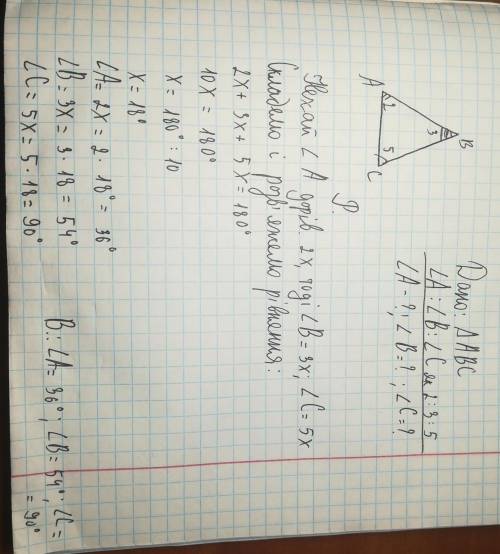 Дано: ΔABC
∠A : ∠B : ∠C як 2 : 3 : 5
∠A - ?; ∠B = ?; ∠C = ?
B
3
A
2
5
C
Р.
Нехай ∠A дорів. 2x, тоді ∠B = 3x, ∠C = 5x
Складемо і розв'яжемо рівняння:
2x + 3x + 5x = 180°
10x = 180°
x = 180° : 10
x = 18°
∠A = 2x = 2 · 18° = 36°
∠B = 3x = 3 · 18 = 54°
∠C = 5x = 5 · 18 = 90°
В.: ∠A = 36°; ∠B = 54°; ∠C =
= 90°